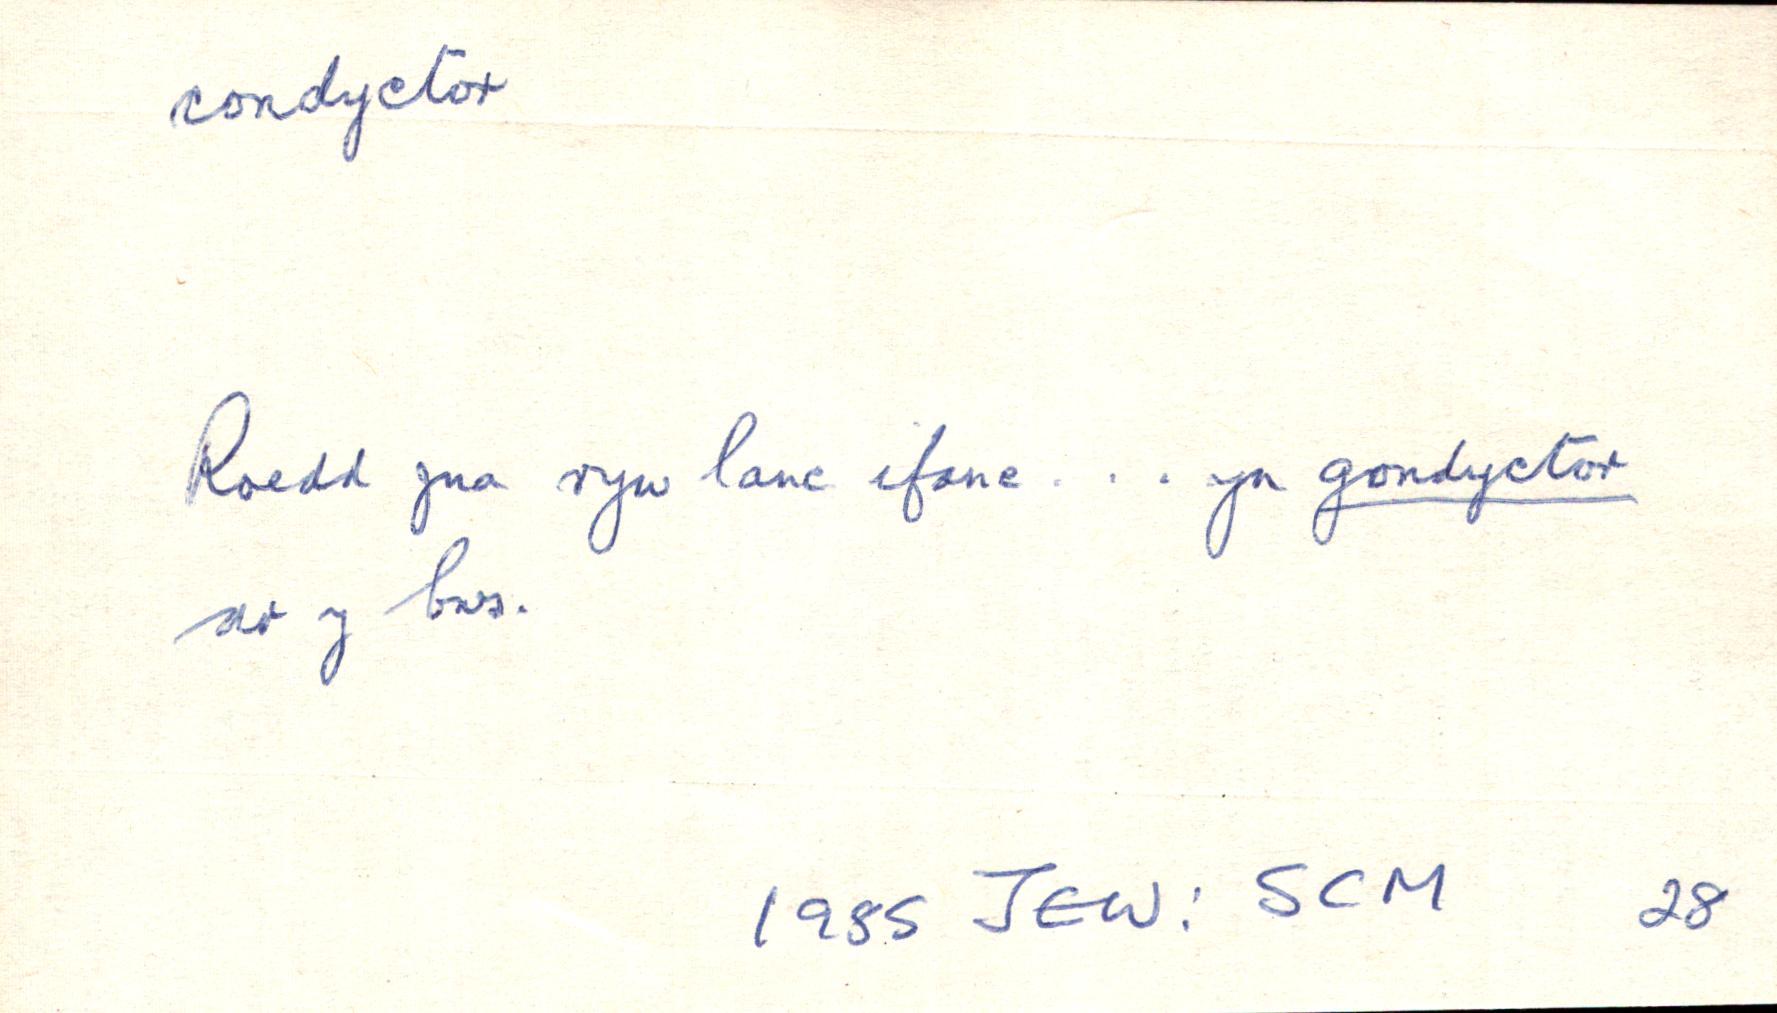 condyctor
Roedd yna ryw lanc ifanc . . . yn gondyctor
ar y bws.
1985 JEW: SCM 28